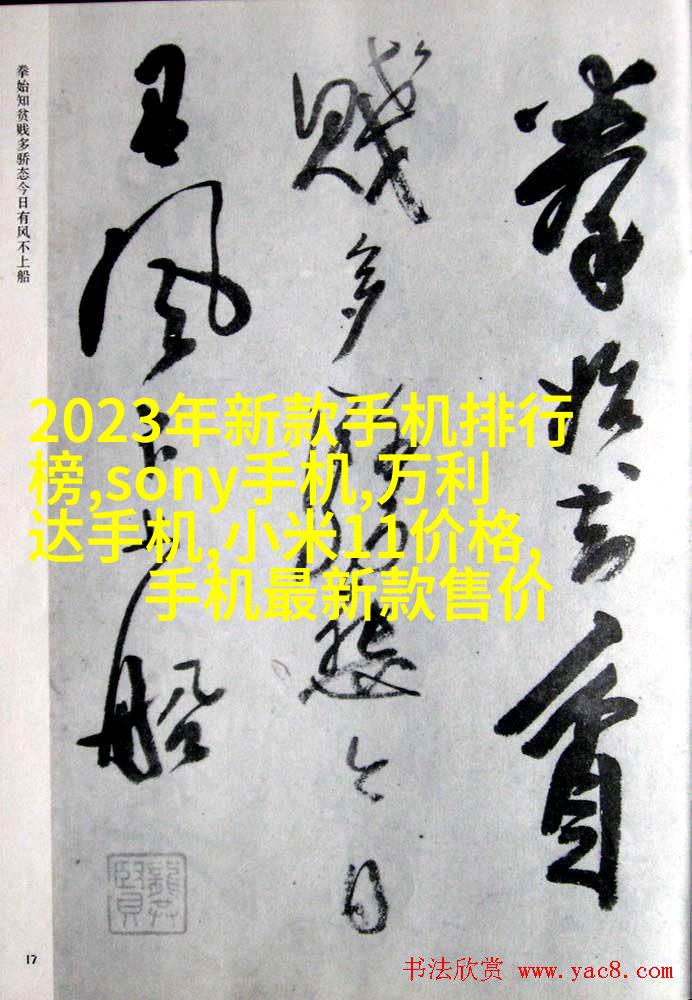 拳始知貧
賤多驕態今日
有風不上船
拳始知贫贱多骄态今日有风不上船
2023年新款手机排行
榜,sony手机,万利
达手机,小米11价格,
手机最新款售价
17
书法欣赏 www.yac8.com